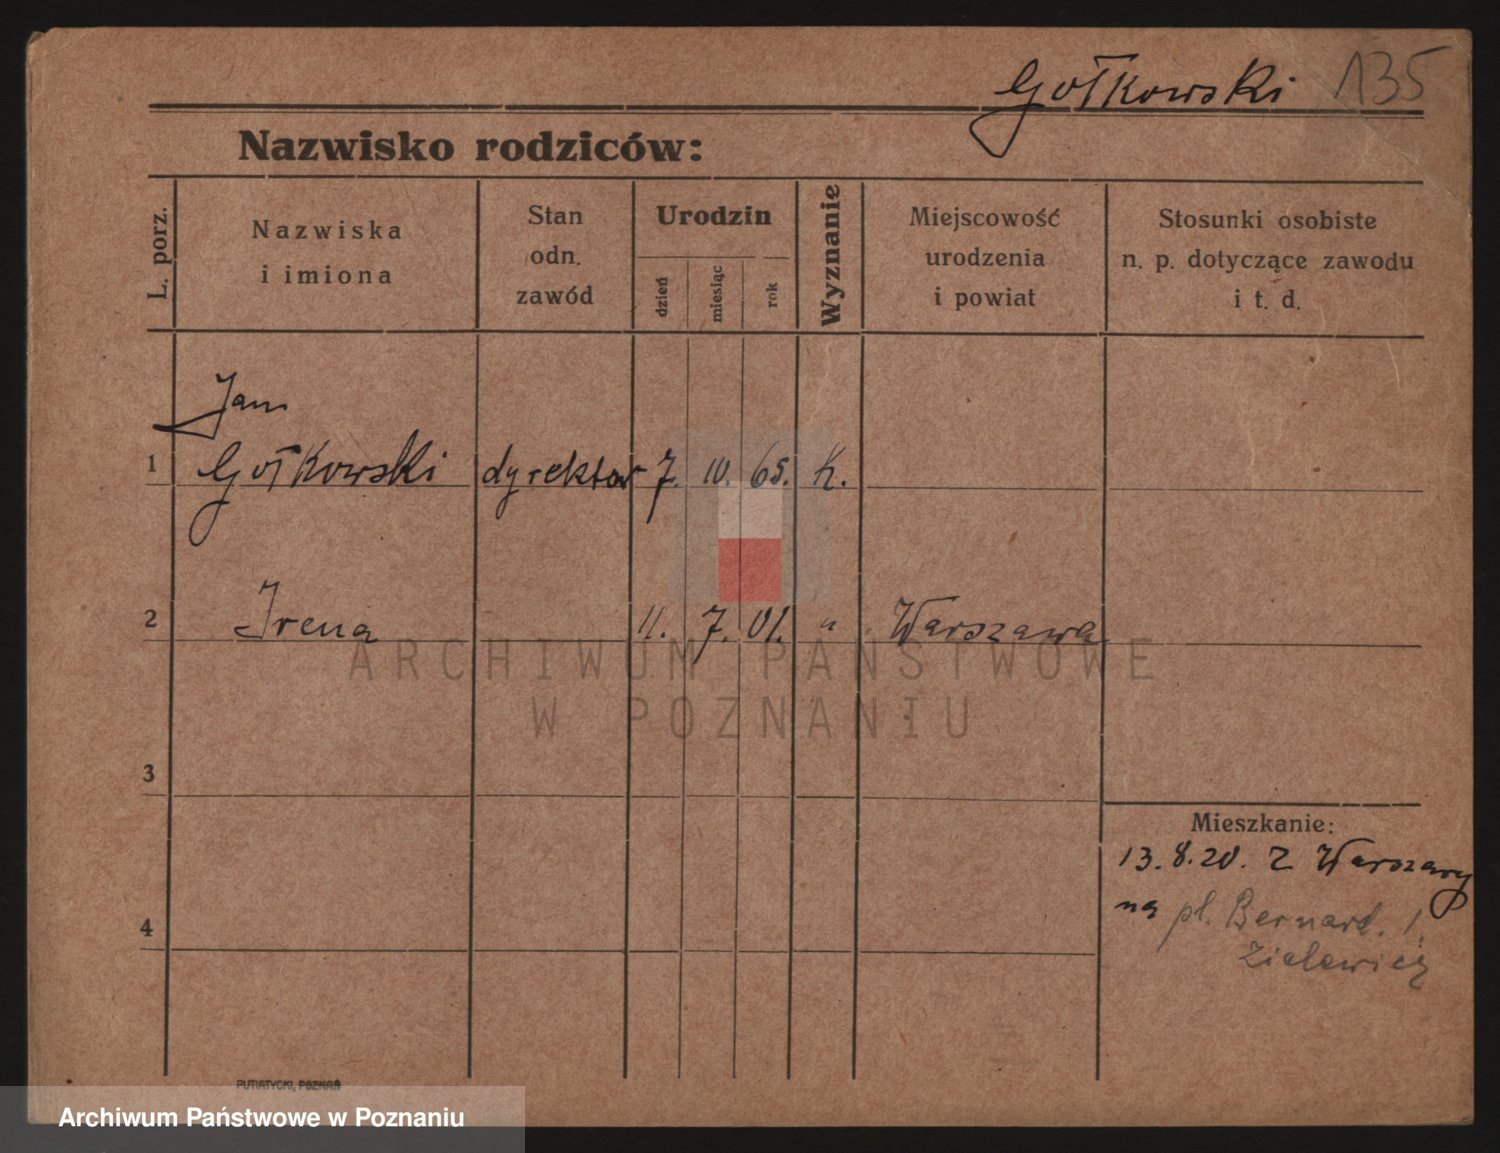 Gołkowski 135
Nazwisko rodziców:
L. porz.
Nazwiska
i imiona
Stan
odn.
zawód
Urodzin
dzień
miesiąc
rok
Wyznanie
Miejscowość
urodzenia
i powiat
Stosunki osobiste
n. p. dotyczące zawodu
i t. d.
Jan
1 Gołkowski dyrektor 7. IV. 65. K.
2 Irena 11. 7. 01. " Warszawa
ARCHIWUM PAŃSTWOWE
W POZNANIU
3
Mieszkanie:
13.8.20. z Warszawy
4 na pl. Bernard. 1
PUTIATYCKI, POZNAŃ
Archiwum Państwowe w Poznaniu